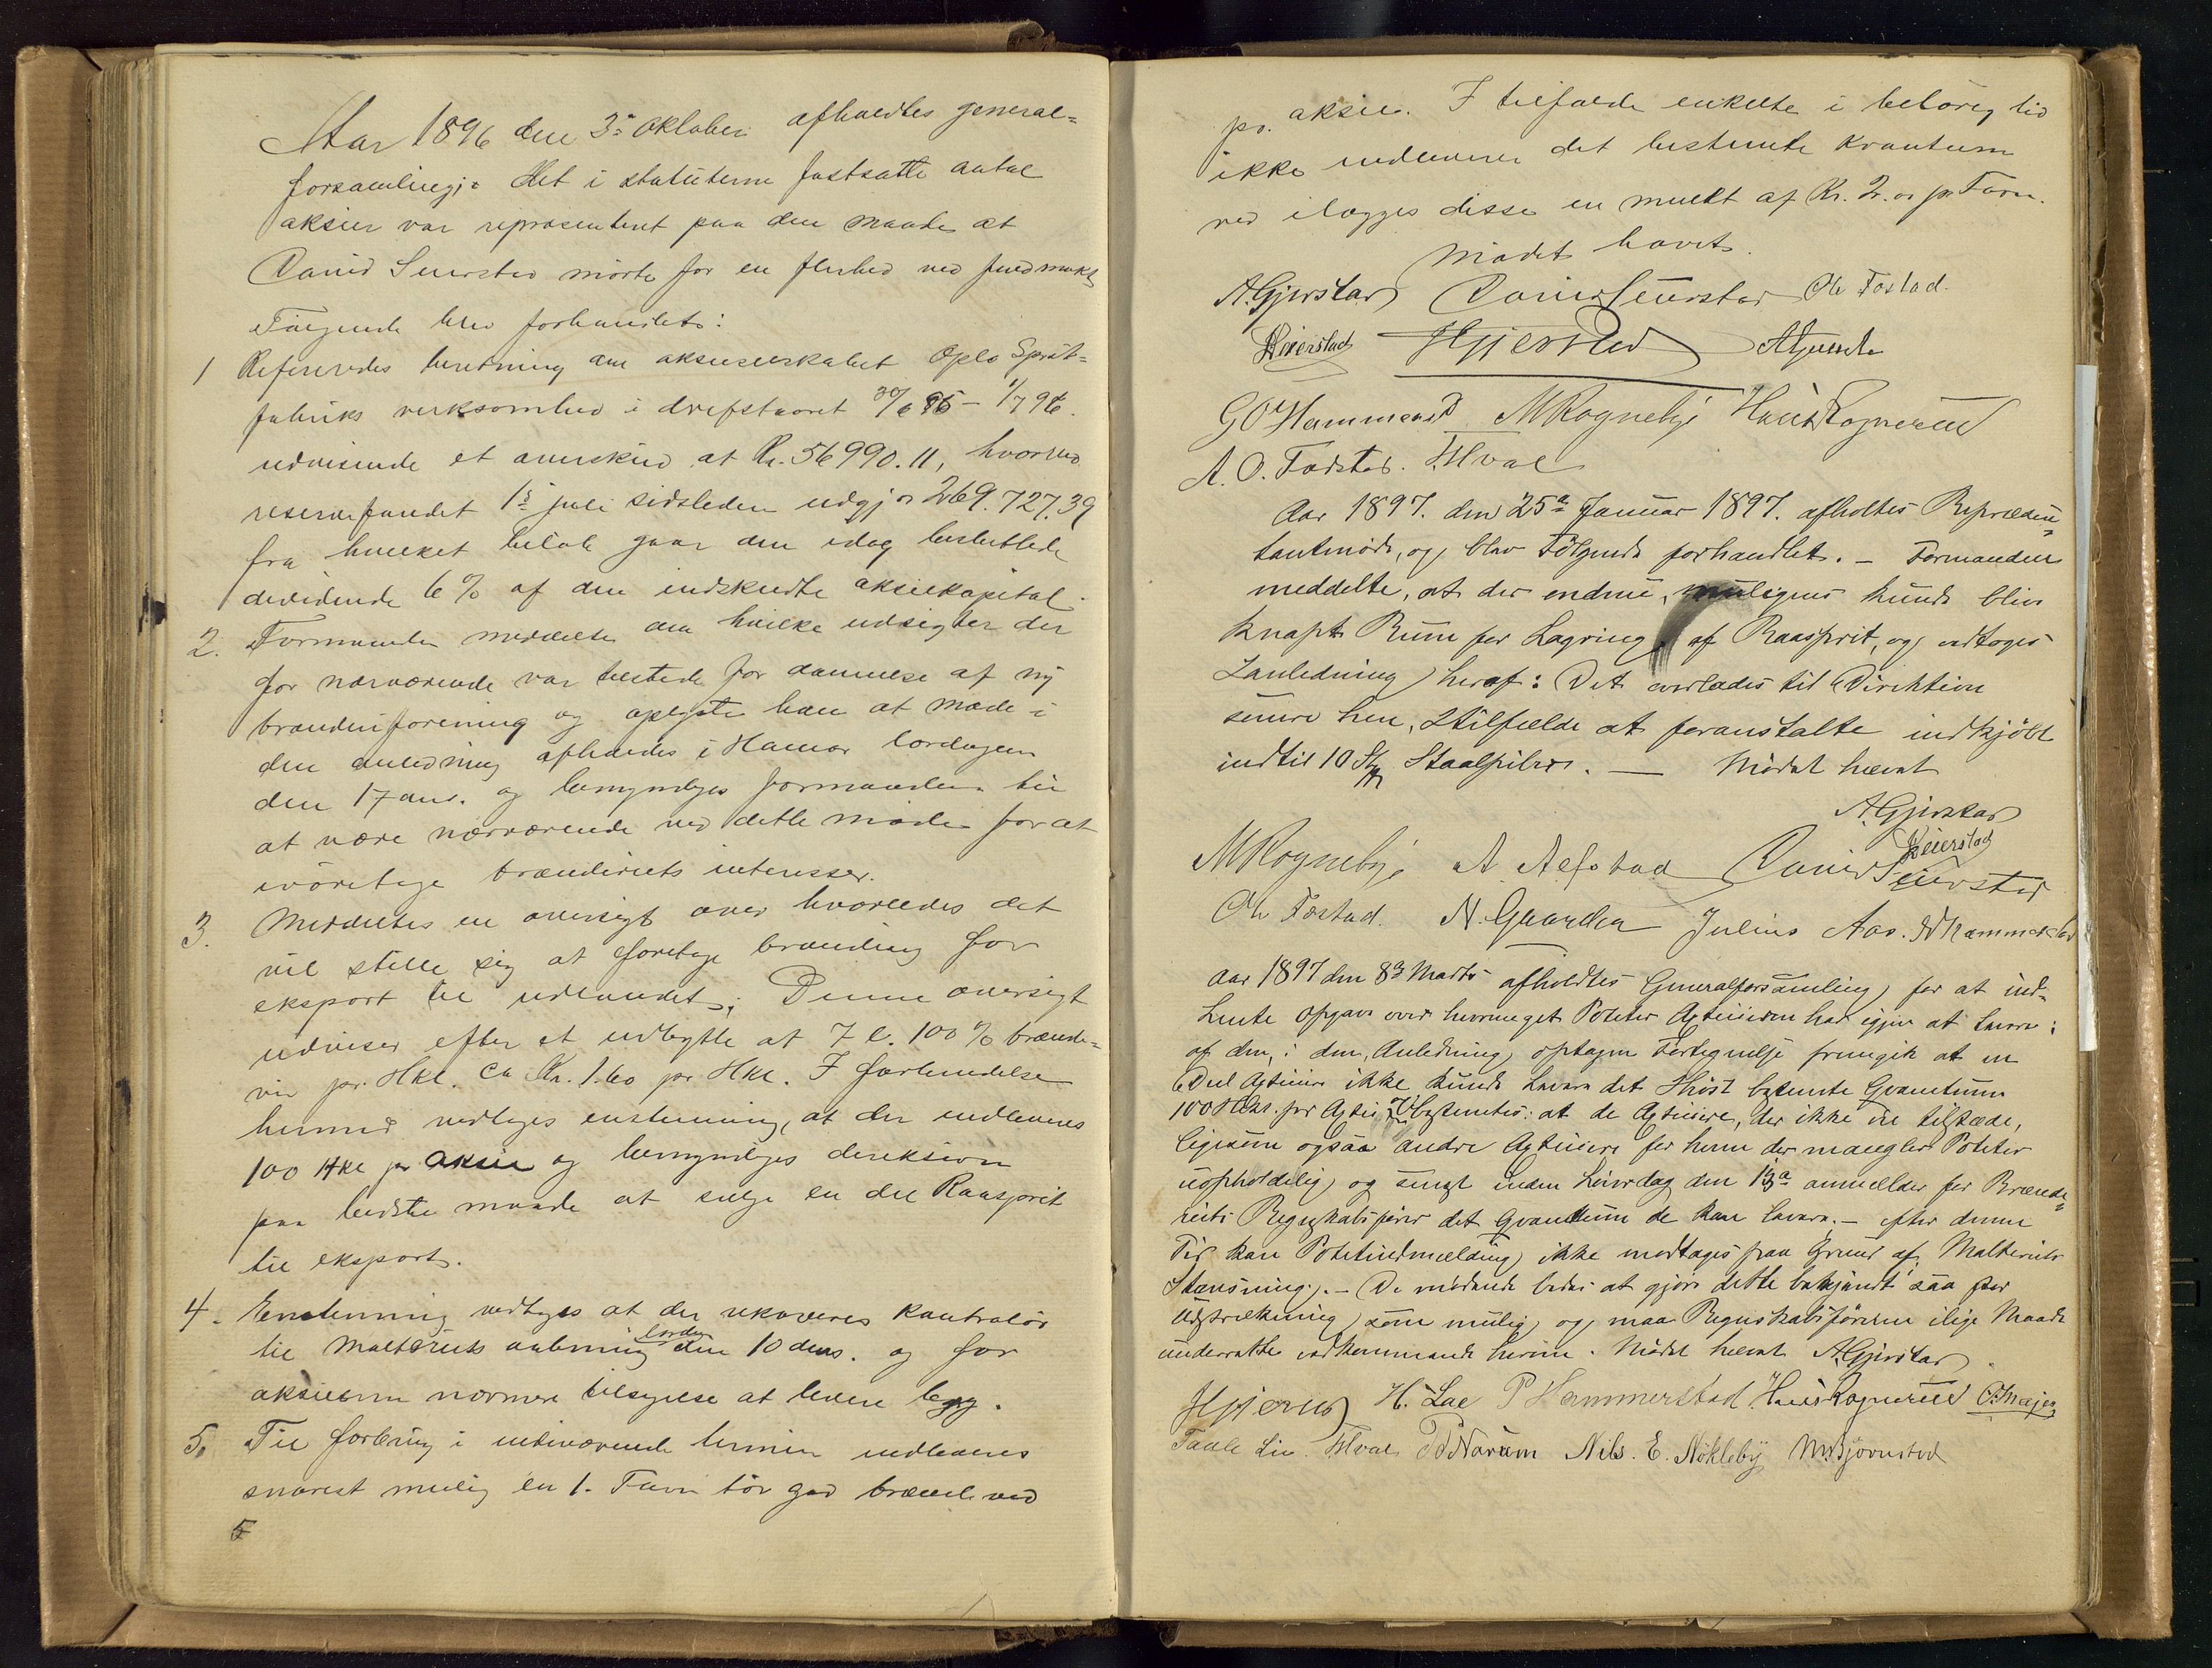 Aar 1896 den 3de Oktober afholdtes general=
forsamling. Det i statuterne fastsatte antal
aksier var repræsenteret paa den maade at
David Seierstad mødte for en flerhed ved fuldmakt
Følgende blev forhandlet:
1 Refereredes beretning om aksieselskabet Oplo Sprit=
fabriks virksomhed i driftsaaret 30/6 95 – 1/7 96.
udvisende et overskud at Kr. 56990.11, hvorved
reservefondet 1ste juli sidstleden udgjør 269.727.39
fra hvilket beløb gaar den idag besluttede
dividende 6% af den indskudte aksiekapital.
2. Formanden meddelte om hvilke udsigter der
for nærværende var tilstede for dannelse af ny
brænderiforening og oplyste han at møde i
den anledning afholdes i Hamar lørdagen
den 17 ds. og bemyndiges formanden til
at være nærværende ved dette møde for at
ivaretage brænderiets interesser.
3. Meddeltes en oversigt over hvorledes det
vil stille sig at foretage brænding for
eksport til udlandet; Denne oversigt
udviser efter et udbytte at 7 l. 100 % brænde=
vin pr. Hkl. ca Kr. 1.60 pr. Hkl. I forbindelse
hermed vedtoges enstemmig, at der indleveres
100 Hkl pr aksie og bemyndiges direksion
paa bedste maade at sælge en del Raasprit
til eksport.
4. Enstemmig vedtoges at der rekvireres kontrolør
til Malteriets aabning lørdag den 10 dens. og for
aksierne nærmere tilsigelse at levere bygg.
5. Til forbrug i indeværende termin indleveres
snarest mulig en 1. Favn tør god brændeved
5
pr. aksie. I tilfælde enkelte i betørig tid
ikke indleverer det bestemte kvantum
ved ilægges disse en mulkt af Kr. 2.00 pr Favn.
Mødet hævet.
A. Gjerstad David Seierstad Ole Fostad.
Seierstad H Gjerstad
G O Hammerstad M Rognebye Hans Rognerud
A. O. Fodstad. Hval
Aar 1897. den 25de Januar 1897. afholtes Repræsen=
tantmøde, og blev Følgende forhandlet. – Formanden
meddelte, at der endnu, muligens kunde blive
knapt Rum for Lagring af Raasprit, og vedtoges
I anledning heraf: Det overlades til Direktionen
senere hen, I tilfælde at foranstalte indkjøbt
indtil 10 Stk Staalpiber. — Mødet hævet
A. Gjerstad
Seierstad
M Rognebye A Alfstad David Seierstad
Ole Fostad. N. Gaarder Julius Aas. G O Hammerstad
Aar 1897 den 8de Marts afholdtes Generalforsamling, for at ind=
hente Opgave over hvormeget Poteter Agtieierne har igjen at levere;
af den, i den, Anledning, optagne Fortegnelse fremgik at en
Deel Agtieiere ikke kunde levere det Høst bestemte Qvantum
100 Hkl. pr Agtie, bestemtes: at de Agtieiere, der ikke er tilstæde,
ligesom ogsaa andre Agtieiere for hvem der mangler Poteter
uopholdelig, og senest inden Løverdag den 13de anmælder for Brænde=
riets Regnskabsfører det Qvantum de kan levere. – efter denne
Tid kan Potetindmælding, ikke modtages paa Grund af Malteriets
Stansning. – De mødende bedes at gjøre dette bekjendt saa stor
Udstrækning, som mulig, og maa Regnskabsføreren ilige Maade
underrette vedkommende herom. Mødet hævet A. Gjerstad
H Gjerstad H. Lae P Hammerstad. Hans Rognerud
Hval P Narum Nils. E. Nøkleby M. Bjørnstad